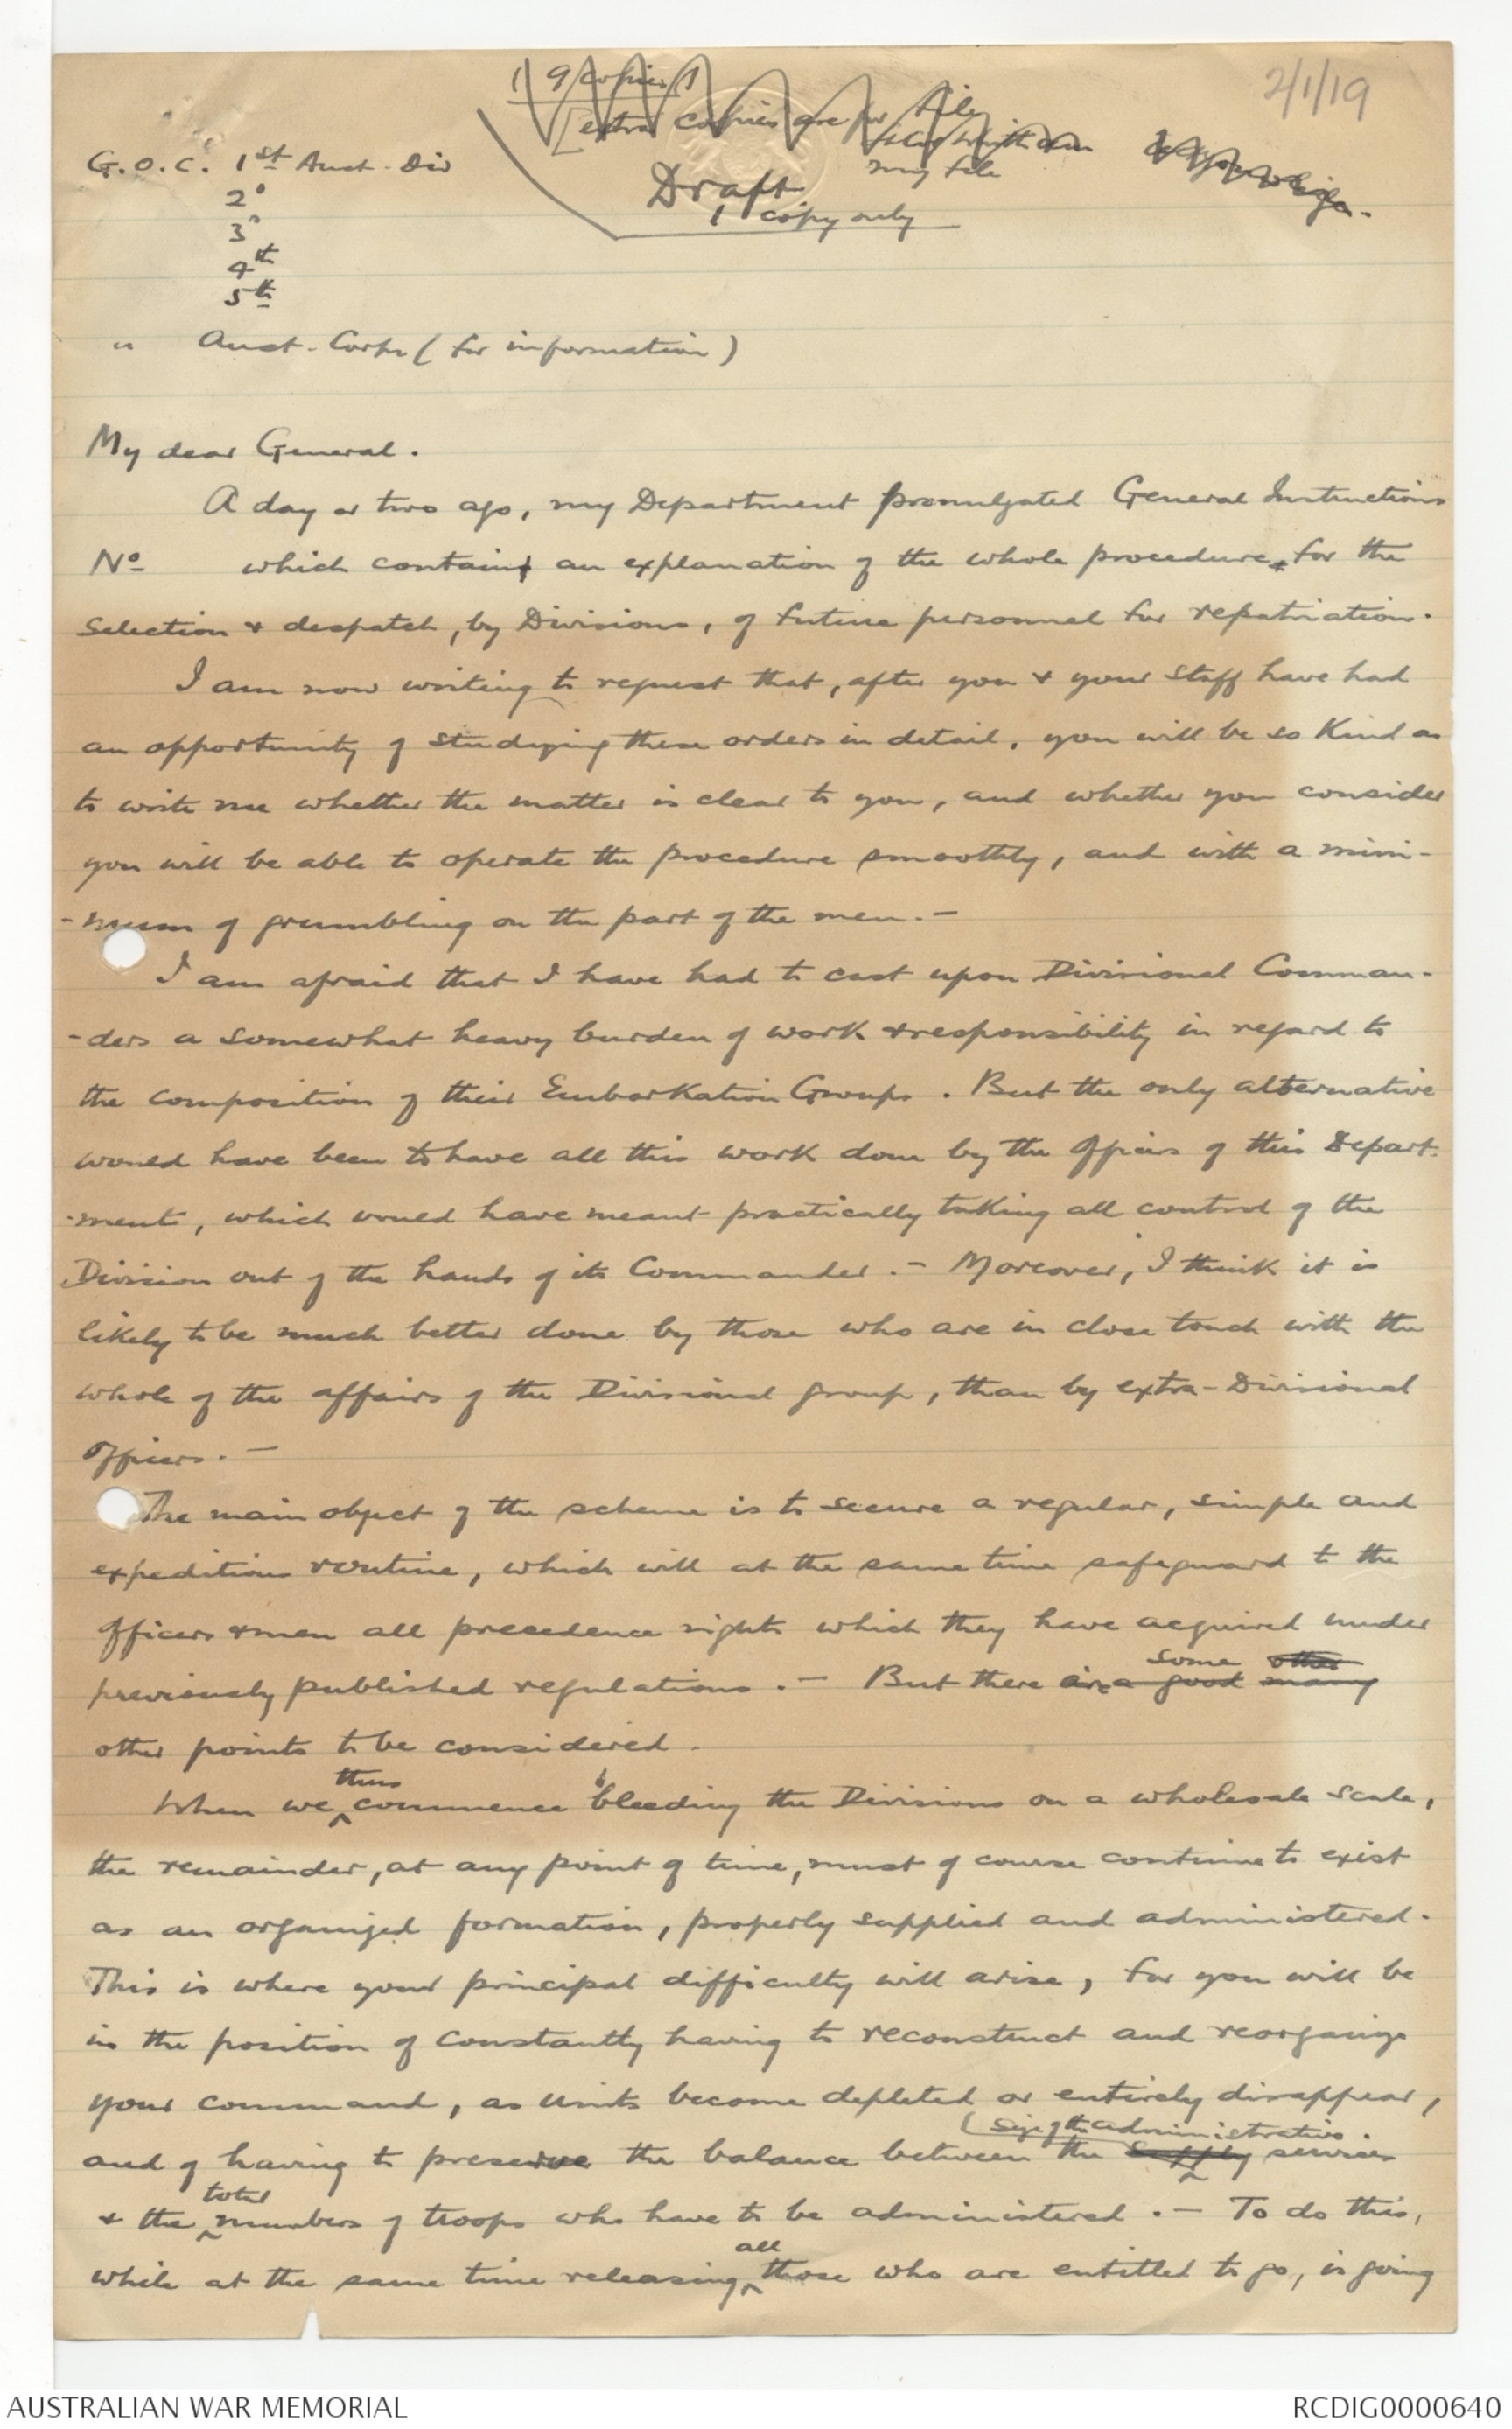 2/1/19
( 9 copies )
[extra copies are for File
my file
Draft
1 copy only
G.O.C. 1st Aust. Div
2d
3d
4th
5th
" Aust. Corps (for information)
My dear General.
A day or two ago, my Department promulgated General Instructions
No which contain an explanation of the whole procedure, for the
selection & despatch, by Divisions, of future personnel for repatriation.
I am now writing to request that, after you & your Staff have had
an opportunity of studying these orders in detail, you will be so kind as
to write me whether the matter is clear to you, and whether you consider
you will be able to operate the procedure smoothly, and with a mini-
-mum of grumbling on the part of the men. -
I am afraid that I have had to cast upon Divisional Comman-
-ders a somewhat heavy burden of work & responsibility in regard to
the composition of their Embarkation Groups. But the only alternative
would have been to have all this work done by the Officers of this Depart-
-ment, which would have meant practically taking all control of the
Division out of the hands of its Commander. - Moreover, I think it is
likely to be much better done by those who are in close touch with the
whole of the affairs of the Divisional group, than by extra-Divisional
Officers. -
The main object of the scheme is to secure a regular, simple and
expeditious routine, which will at the same time safeguard to the
Officers & men all precedence rights which they have acquired under
some other
previously published regulations. - But there are a good many
other points to be considered.
thus
When we commence bleeding the Divisions on a wholesale scale,
the remainder, at any point of time, must of course continue to exist
as an organized formation, properly supplied and administered.
This is where your principal difficulty will arise, for you will be
in the position of constantly having to reconstruct and reorganize
your command, as units become depleted or entirely disappear,
(size of the administrative
and of having to preserve the balance between the supply services
total
& the numbers of troops who have to be administered. - To do this,
all
while at the same time releasing those who are entitled to go, is going
AUSTRALIAN WAR MEMORIAL
RCDIG0000640